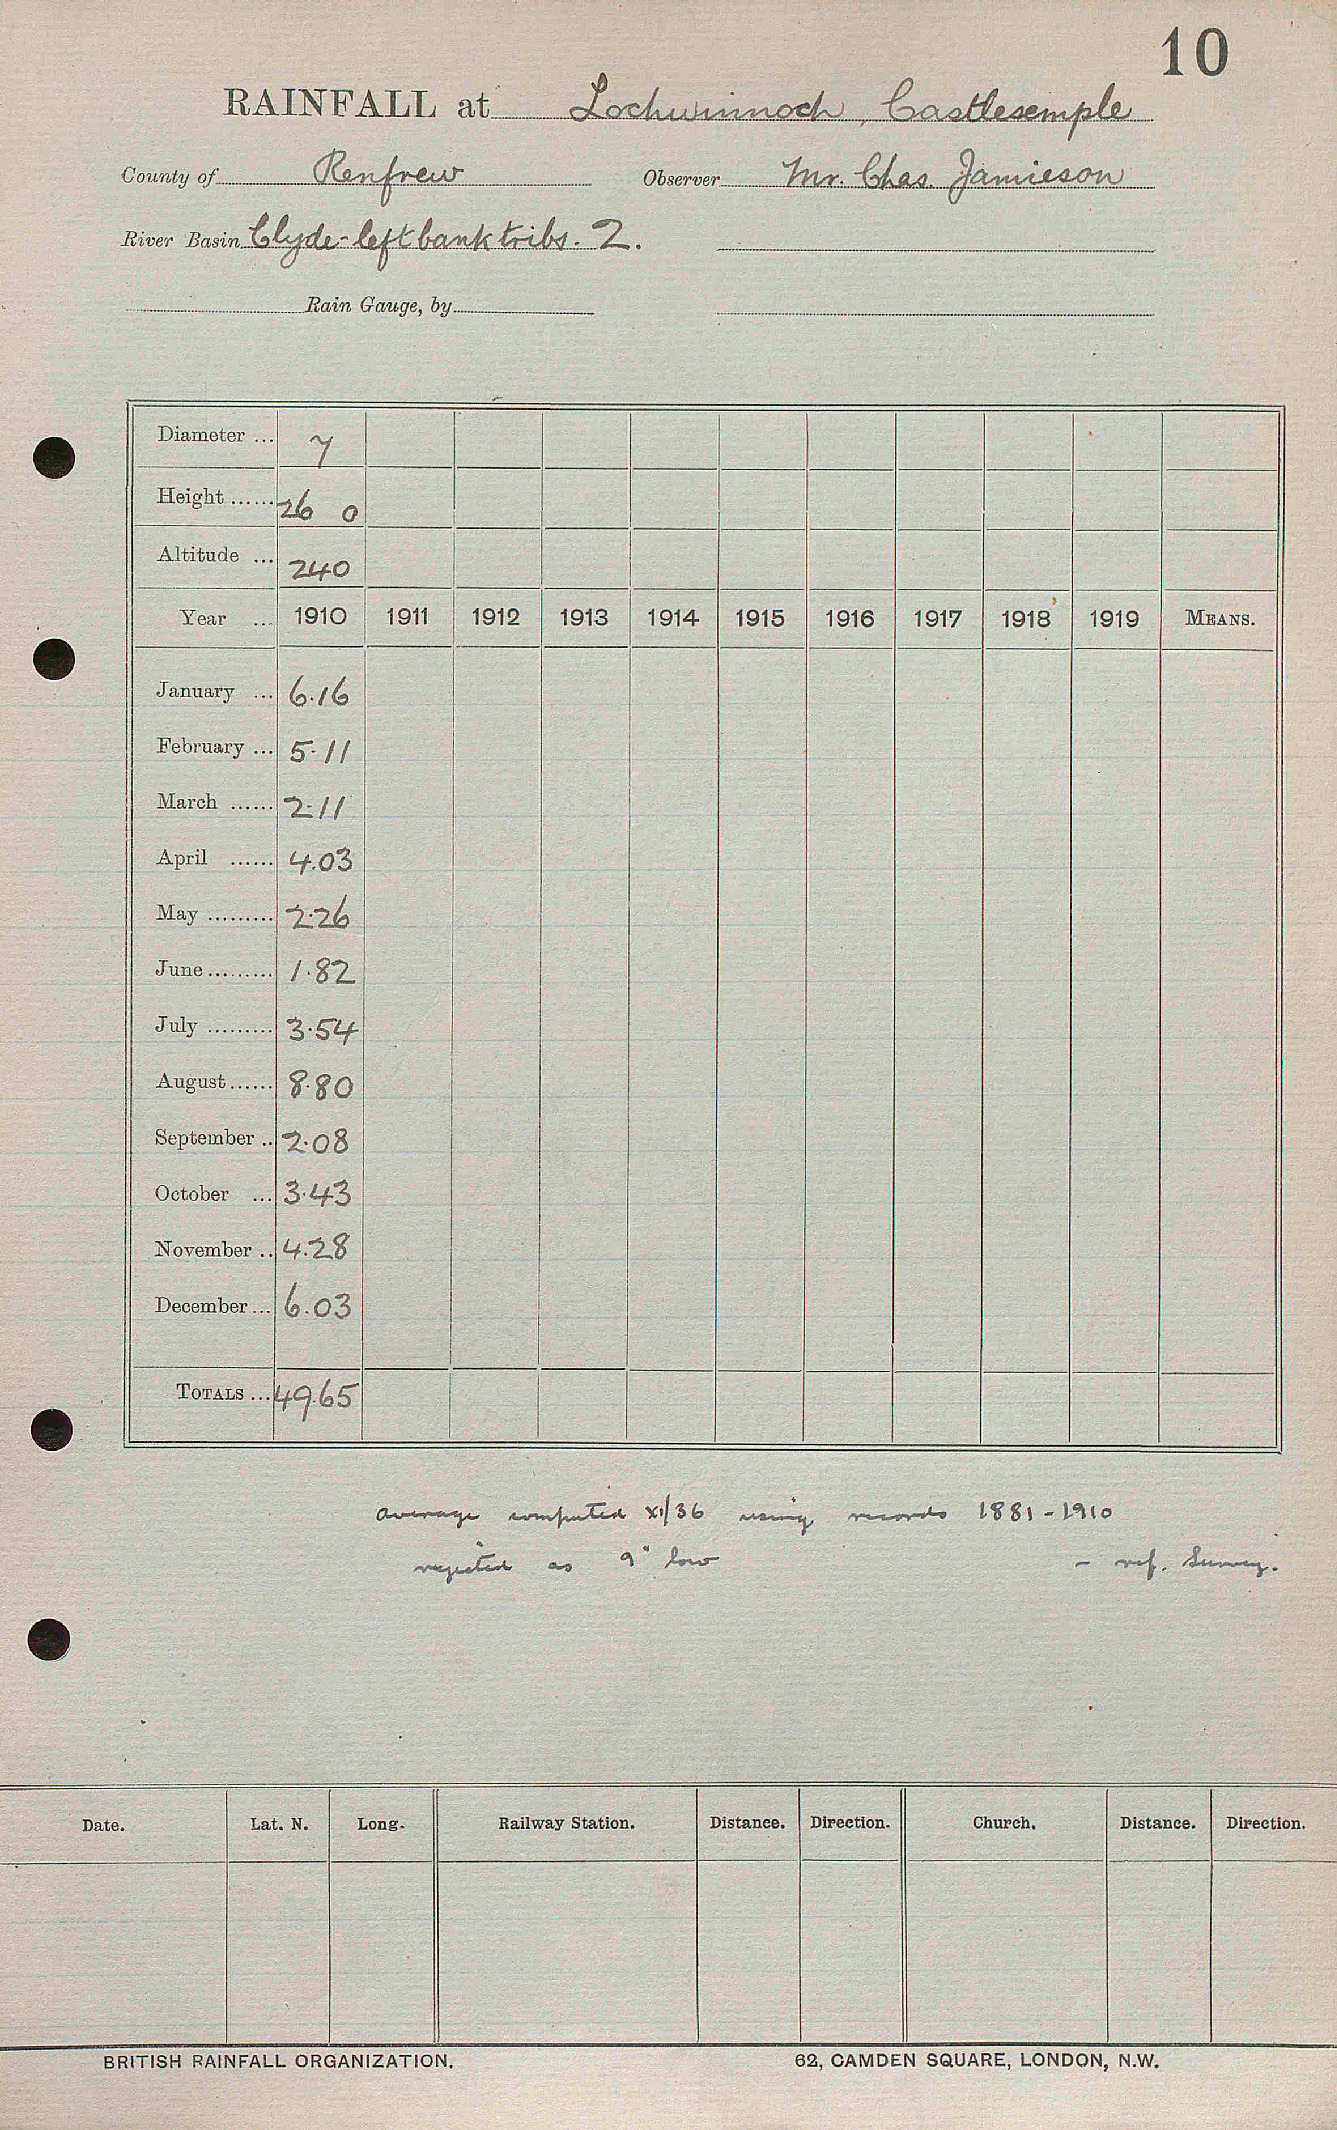 10
RAINFALL at Lochwinnoch, Castlesemple
County of Renfrew Observer Mr. Chas. Jamieson
River Basin Clyde-left bank tribs. 2.
Rain Gauge, by
Diameter ... 7
Height ...... 26 0
Altitude ... 240
Year ... 1910 1911 1912 1913 1914 1915 1916 1917 1918 1919 MEANS.
January ... 6.16
February ... 5.11
March ...... 2.11
April ...... 4.03
May ......... 2.26
June ......... 1.82
July ......... 3.54
August ...... 8.80
September .. 2.08
October ... 3.43
November .. 4.28
December ... 6.03
TOTALS ... 49.65
average computed XI/36 using records 1881-1910
rejected as 9" low - ref. Survey.
Date. Lat. N. Long. Railway Station. Distance. Direction. Church. Distance. Direction.
BRITISH RAINFALL ORGANIZATION. 62, CAMDEN SQUARE, LONDON, N.W.